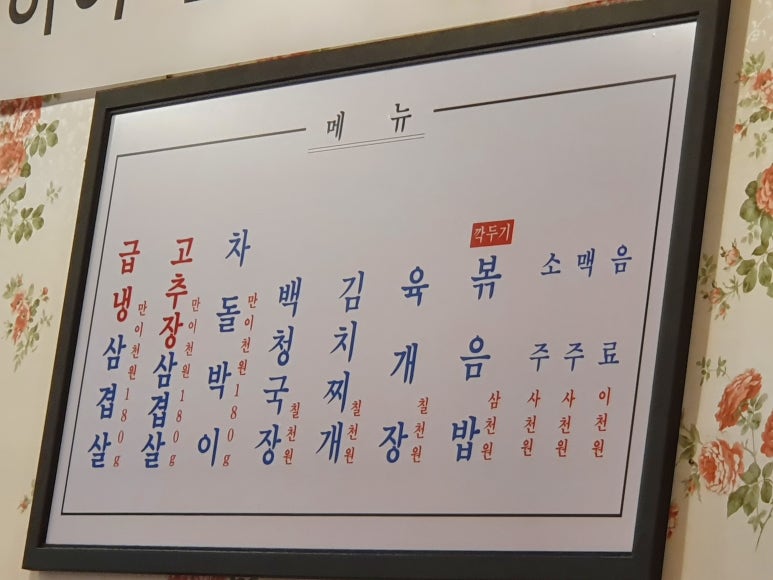 메뉴
급냉삼겹살 만이천원 180g
고추장삼겹살 만이천원 180g
차돌박이 만이천원 180g
백청국장 칠천원
김치찌개 칠천원
육개장 칠천원
깍두기
볶음밥 삼천원
소주 사천원
맥주 사천원
음료 이천원